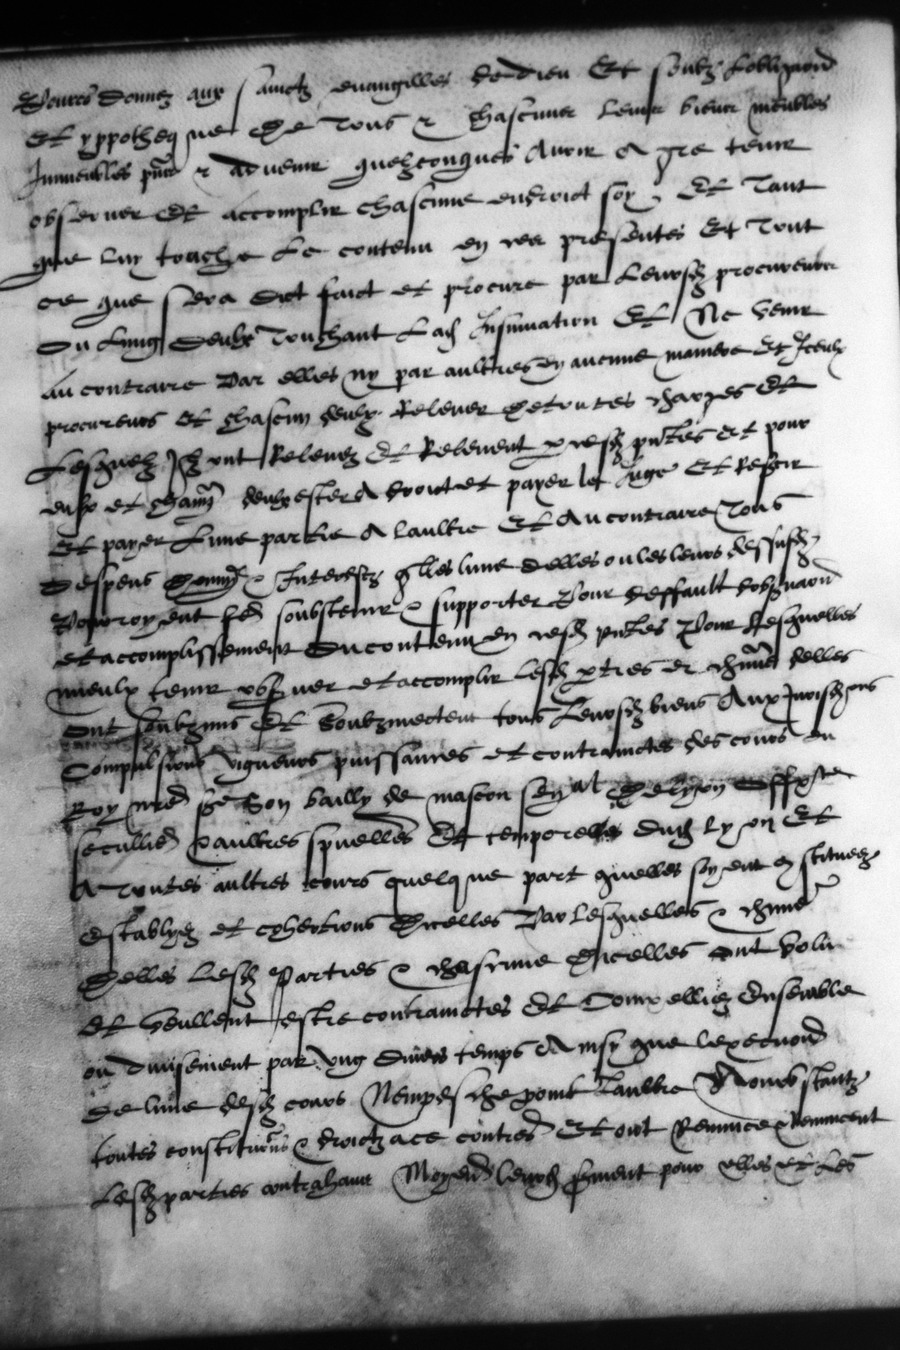 donnez aux sainctz evangilles de dieu Et soubz lobligaond
Et yppotheque De Tous & chascuns leurs biens meubles
Immeubles pntz & advenir quelzconques Avoir A gre tenir
observer Et accomplir chascune endroict soy Et Tant
que luy touche Le contenu en ces presentes Et Tout
ce que sera dict faict et procure par Leursdz procureurs
Ou Lung Deulx Touchant Lad Insinuation Et Ne venir
Au contraire Par elles ny par aultres en aucune maniere Et Iceulx
procureurs et chascun deulx Relever de toutes charges Et
Lesquelz Ilz ont Relevez Et Relevent p cesdz pntes Et pour
eulx et deulx ester A droict et payer le Juge Et Refair
Et payer Lune partie A laultre Et Au contraire Tous
Despens & Interestz qlles lune delles ou les leurs dessusdz
Pourroyent soubstenir & supporter Pour deffault dobsvaond
et accomplissement Du contenu en cesdz pntes Pour Lesquelles
mieulx tenir observer et accomplir Lesdz pties et chune delles
Ont soubzmis Et Soubzmectent tous Leursdz biens Aux
Compulsions vigueurs puissances et contrainctes des cours du
Roy nred Son bailly de mascon senal De lyon
seculliere & aultres spuelles Et temporelles dud Lyon Et
A Toutes aultres cours quelque part quelles soyent
establyes et cohertions Dicelles Par Lesquelles & chune
Delles Lesdz Parties & chascune Dicelles ont volu
Et veullent estre contrainctes Et Ensemble
ou divisement par ung divers temps Ainsy que lexecuond
De lune desdz cours Nempesche point Laultre Nonobstantz
toutes constitutions & droictz ace contred Et ont Renunce & Renuncent
Lesdz parties contrahans Moyend leurd sment pour elles et Les